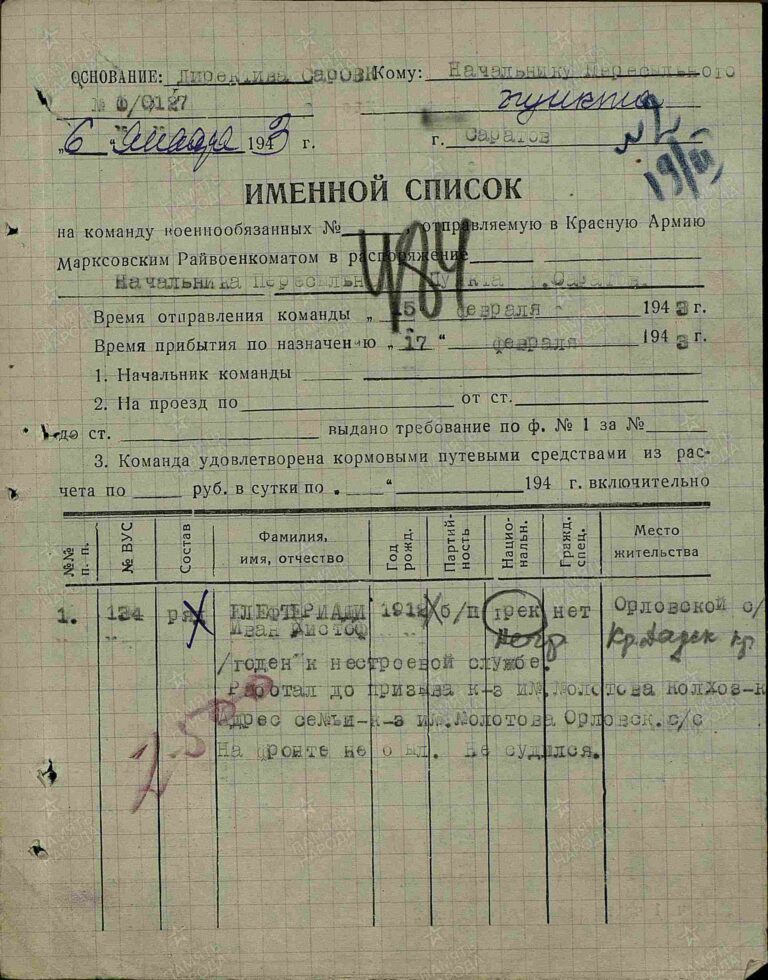 ОСНОВАНИЕ: Директива СаровК Кому: Начальнику Пересыльного
№ Ф/0127 пункта
„6 „ января 1943 г. г. Саратов
№ 2
19/II
ИМЕННОЙ СПИСОК
на команду военнообязанных № отправляемую в Красную Армию
Марксовским Райвоенкоматом в распоряжение
484
Начальника Пересыльн Пункта г.Саратов.
Время отправления команды „ 15 февраля 1943 г.
Время прибытия по назначению „ 17 “ февраля 1943 г.
1. Начальник команды
2. На проезд по от ст.
до ст. выдано требование по ф. № 1 за №
3. Команда удовлетворена кормовыми путевыми средствами из рас-
чета по руб. в сутки по „ “ 194 г. включительно
№№ п. п. № ВУС Состав Фамилия, имя, отчество Год рожд. Партий- ность Нацио- нальн. Гражд. спец. Место жительства
1. 134 ряд ЕЛЕФТЕРИАДИ 1912 б/п грек нет Орловской с/
Иван Христоф
/годен к нестроевой службе.
Работал до призыва к-з им.Молотова колхоз-к
Адрес семьи-к-з им.Молотова Орловск.с/с
На фронте не был. Не судился.